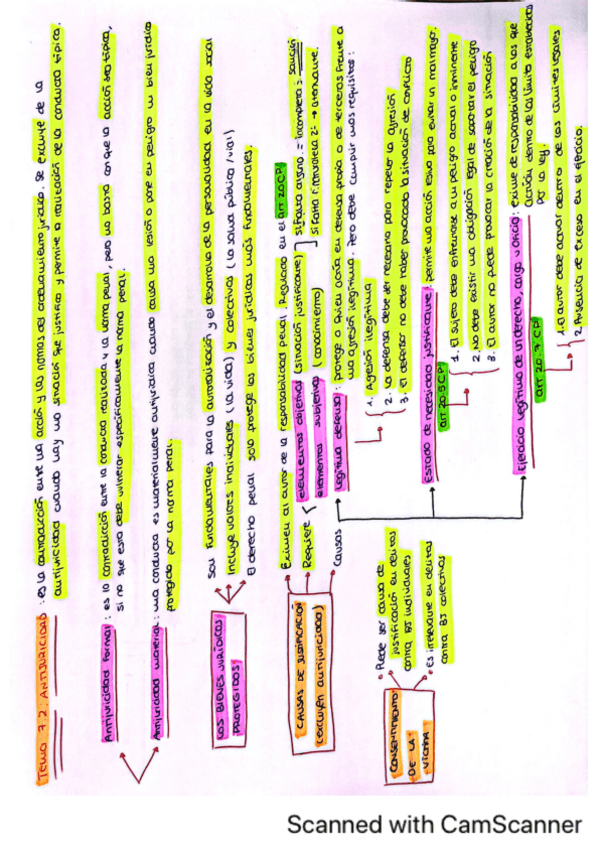 TEMA 7.2: ANTIJURICIDAD: es la contradicción entre una acción y las normas del ordenamiento jurídico. Se excluye de la
antijuricidad cuando hay una situación que justifica y permite la realización de la conducta típica.
Antijuricidad formal: es la contradicción entre la conducta realizada y la norma penal, pero no basta con que la acción sea típica,
si no que esta debe vulnerar específicamente la norma penal.
Antijuricidad material: una conducta es materialmente antijurídica cuando causa una lesión o pone en peligro un bien jurídico
protegido por la norma penal.
LOS BIENES JURÍDICOS
PROTEGIDOS
Son fundamentales para la autorrealización y el desarrollo de la personalidad en la vida social
Incluye valores individuales (la vida) y colectivos (la salud pública / vial)
El derecho penal solo protege los bienes jurídicos más fundamentales.
CAUSAS DE JUSTIFICACIÓN
(excluyen antijuricidad)
Eximen al autor de la responsabilidad penal. Regulado en el art 20 CP
Requiere
elementos objetivos (situación justificante)
elementos subjetivos (conocimiento)
si falta alguno = incompleta =
si falta
Causas
Legítima defensa: protege a quien actúa en defensa propia o de terceros frente a
una agresión ilegítima. Pero debe cumplir unos requisitos:
1. Agresión ilegítima
2. La defensa debe ser necesaria para repeler la agresión
3. El defensor no debe haber provocado la situación de conflicto
Estado de necesidad justificante: permite una acción lesiva para evitar un mal mayor.
art 20.5 CP
1. El sujeto debe enfrentarse a un peligro actual o inminente
2. No debe existir una obligación legal de soportar el peligro
3. El autor no puede provocar la creación de la situación
Ejercicio legítimo de un derecho, cargo u oficio: exime de responsabilidad a los que
actúan dentro de los límites establecidos
por la ley.
art 20.7 CP
1. El autor debe actuar dentro de los límites legales
2. Ausencia de exceso en el ejercicio.
CONSENTIMIENTO
DE LA
VÍCTIMA
• Puede ser causa de
justificación en delitos
contra BJ individuales
• Es irrelevante en delitos
contra BJ colectivos
Scanned with CamScanner